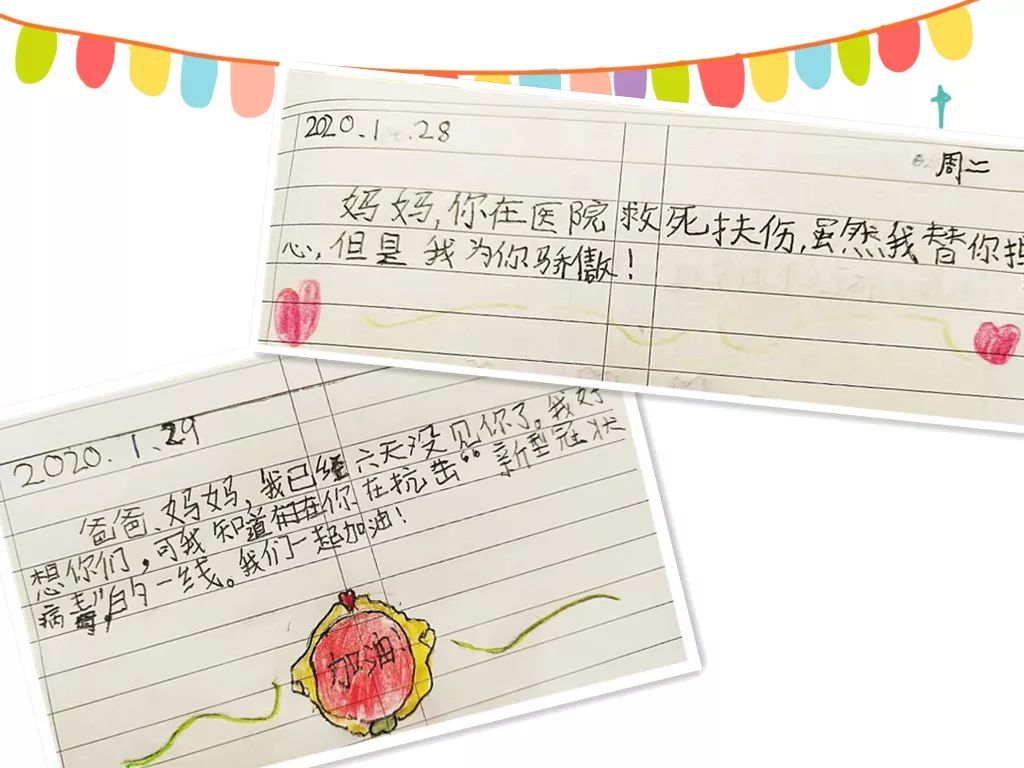 2020.1.28
周二
妈妈,你在医院救死扶伤,虽然我替你担
心,但是我为你骄傲!
2020.1.29
爸爸、妈妈,我已经六天没见你了。我好
想你们,可我知道在你在抗击“新型冠状
病毒”的一线。我们一起加油!
加油